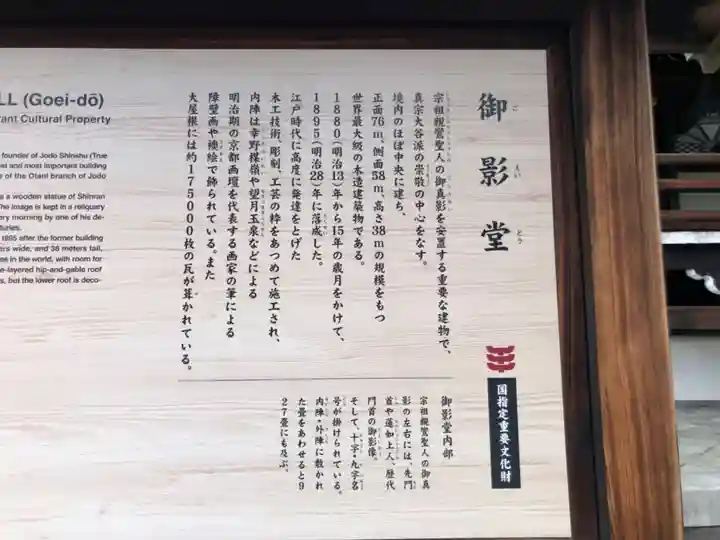 御影堂
ご えい どう
国指定重要文化財
宗祖親鸞聖人の御真影を安置する重要な建物で、
真宗大谷派の崇敬の中心をなす。
境内のほぼ中央に建ち、
正面76m、側面58m、高さ38mの規模をもつ
世界最大級の木造建築物である。
1880(明治13)年から15年の歳月をかけて、
1895(明治28)年に落成した。
江戸時代に高度に発達をとげた
木工技術、彫刻、工芸の粋をあつめて施工され、
内陣は幸野楳嶺や望月玉泉などによる
明治期の京都画壇を代表する画家の筆による
障壁画や襖絵で飾られている。また
大屋根には約175000枚の瓦が葺かれている。
御影堂内部
宗祖親鸞聖人の御真
影の左右には、先門
首や蓮如上人、歴代
門首の御影像。
そして、十字・九字名
号が掛けられている。
内陣・外陣に敷かれ
た畳をあわせると9
27畳にも及ぶ。
LL (Goei-dō)
tant Cultural Property
founder of Jodo Shinshu (True
st and most important building
e of the Otani branch of Jodo
s a wooden statue of Shinran
The image is kept in a reliquary
ery morning by one of his de-
turies.
1895 after the former building
ers wide, and 38 meters tall,
res in the world, with room for
e-layered hip-and-gable roof
s, but the lower roof is deco-